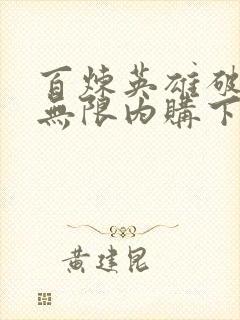 百煉英雄破
無限內購下
黃建昆